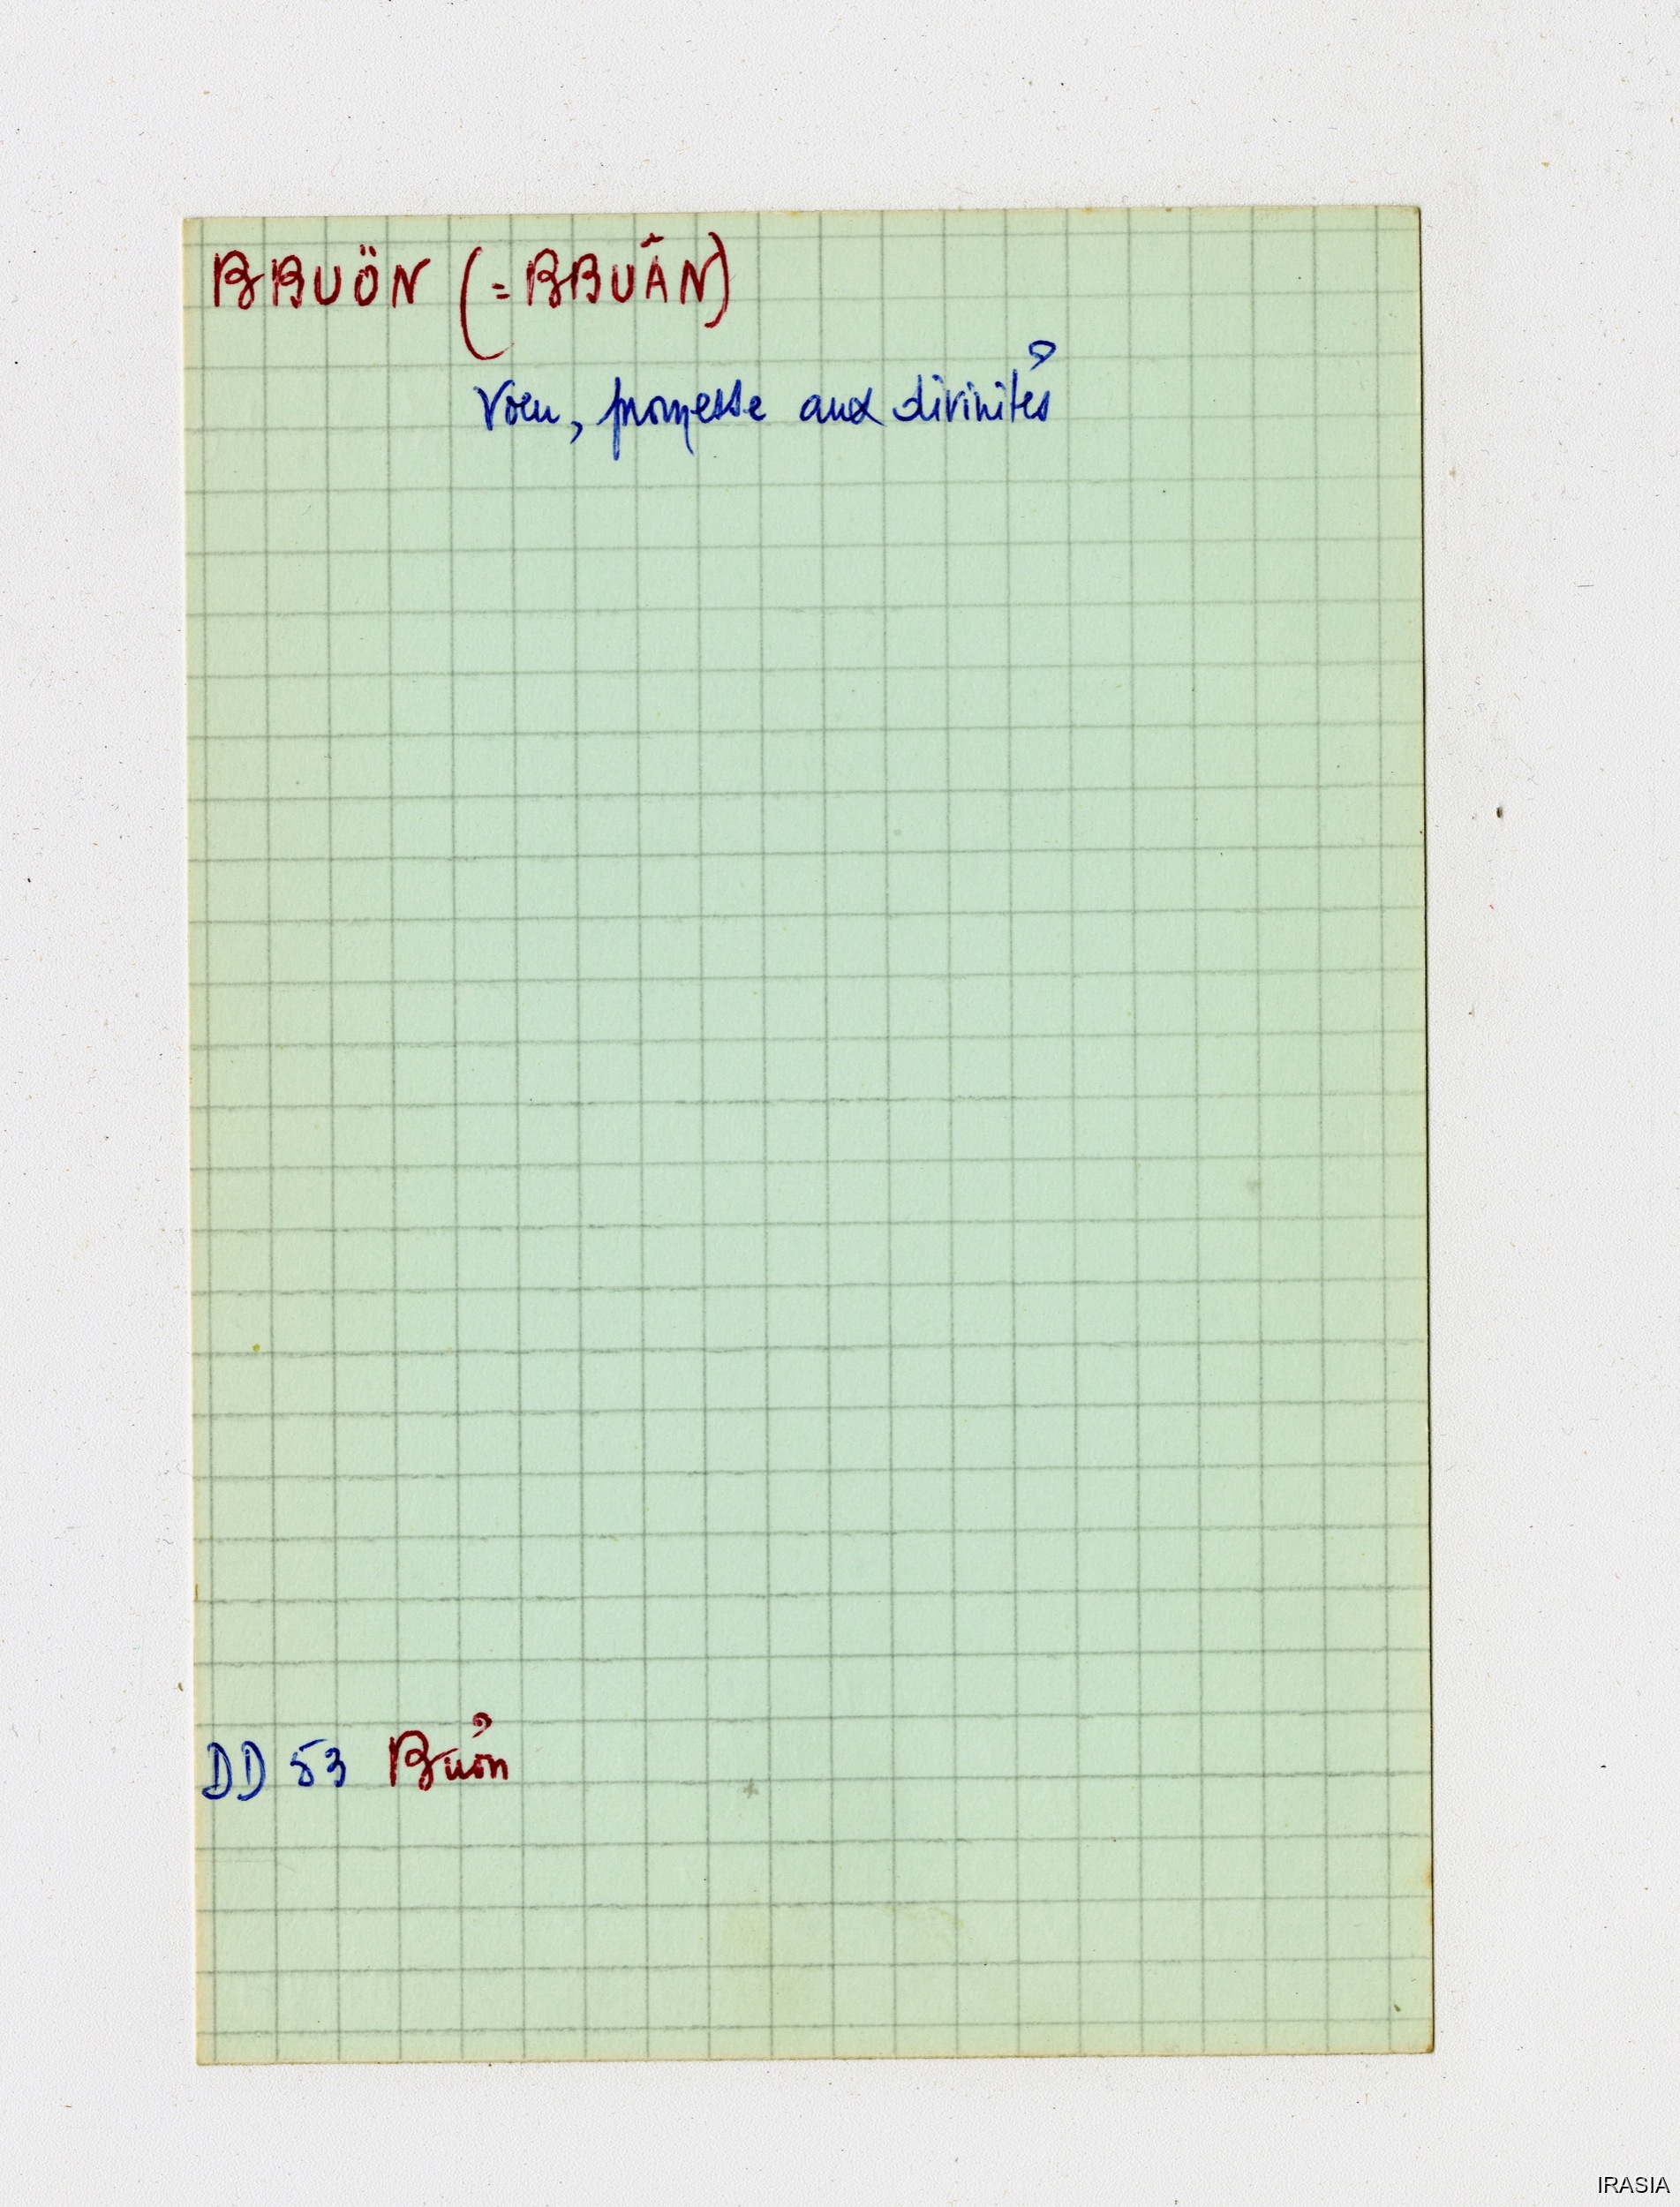 BBUÖN (= BBUÂN)
Voeu, promesse aux divinités
DD 53 Buôn
IRASIA